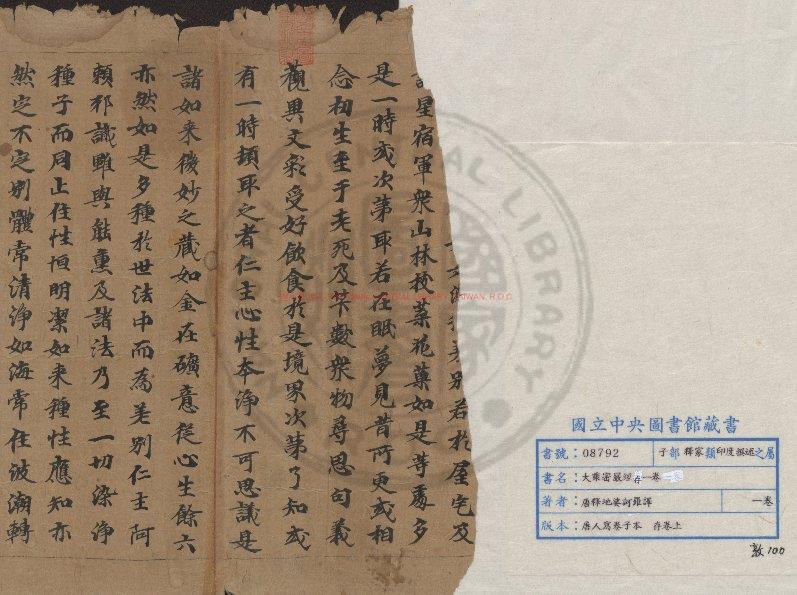 差別若於屋宅及
星宿軍衆山林枝葉花葉如是等處多
是一時或次第取若在眠夢見昔所更或相
念初生至于老死及䒭數衆物尋思句義
觀異文彩受好飲食於是境界次第了知或
有一時頓取之者仁主心性本淨不可思議是
諸如来微妙之藏如金在礦意從心生餘六
亦然如是多種於世法中而為差别仁主阿
賴耶識雖與能熏及諸法乃至一切染淨
種子而同止住性恒明潔如来種性應知亦
然定不定别體常清淨如海常住波潮轉
國立中央圖書館藏書
書號：08792 子部 釋家類印度撰述之屬
書名：大乘密嚴經存一卷
著者：唐釋地婆訶羅譯 一卷
版本：唐人寫卷子本 存卷上
敦100
CENTRAL LIBRARY